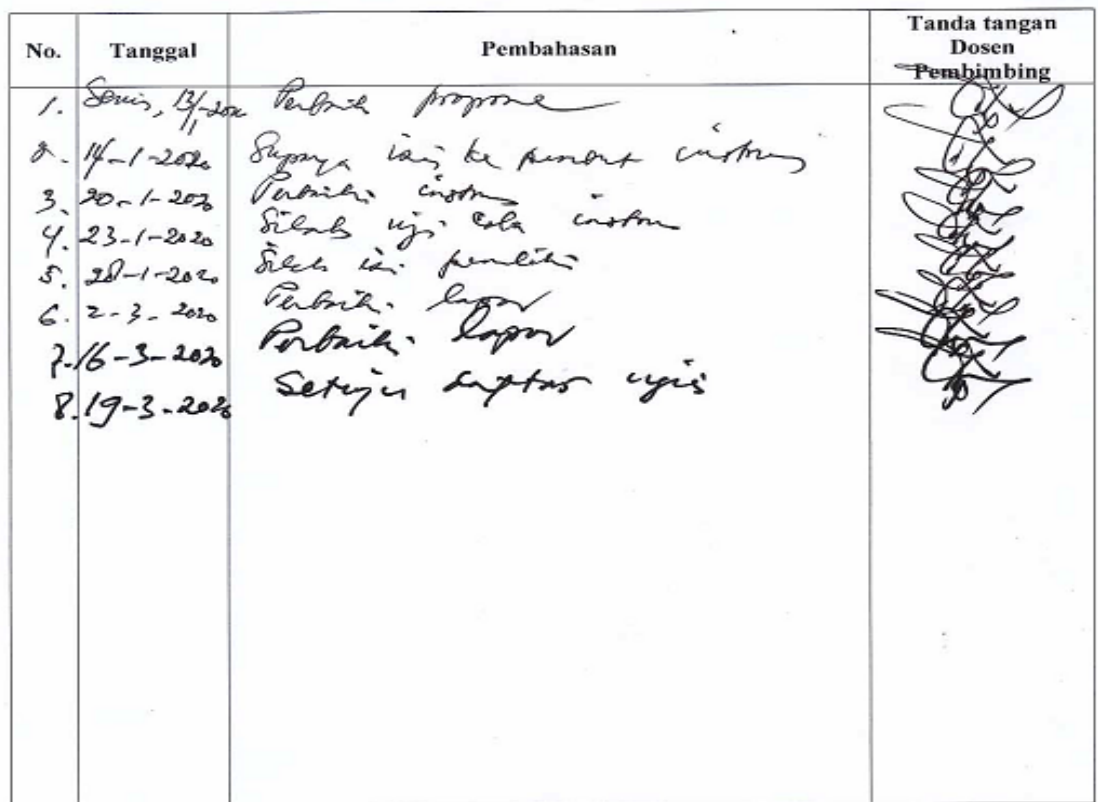 No. Tanggal Pembahasan Tanda tangan Dosen Pembimbing
1. Senin, 13/1-2020 Perbaiki propose
2. 14-1-2020 Supaya izin ke instrum
3. 20-1-2020 Perbaiki instrum
4. 23-1-2020 Silahk uji Coba instrum
5. 28-1-2020 Silahk izin peneliti
6. 2-3-2020 Perbaiki lapor
7. 16-3-2020 Perbaiki lapor
8. 19-3-2020 Setuju daftar ujis